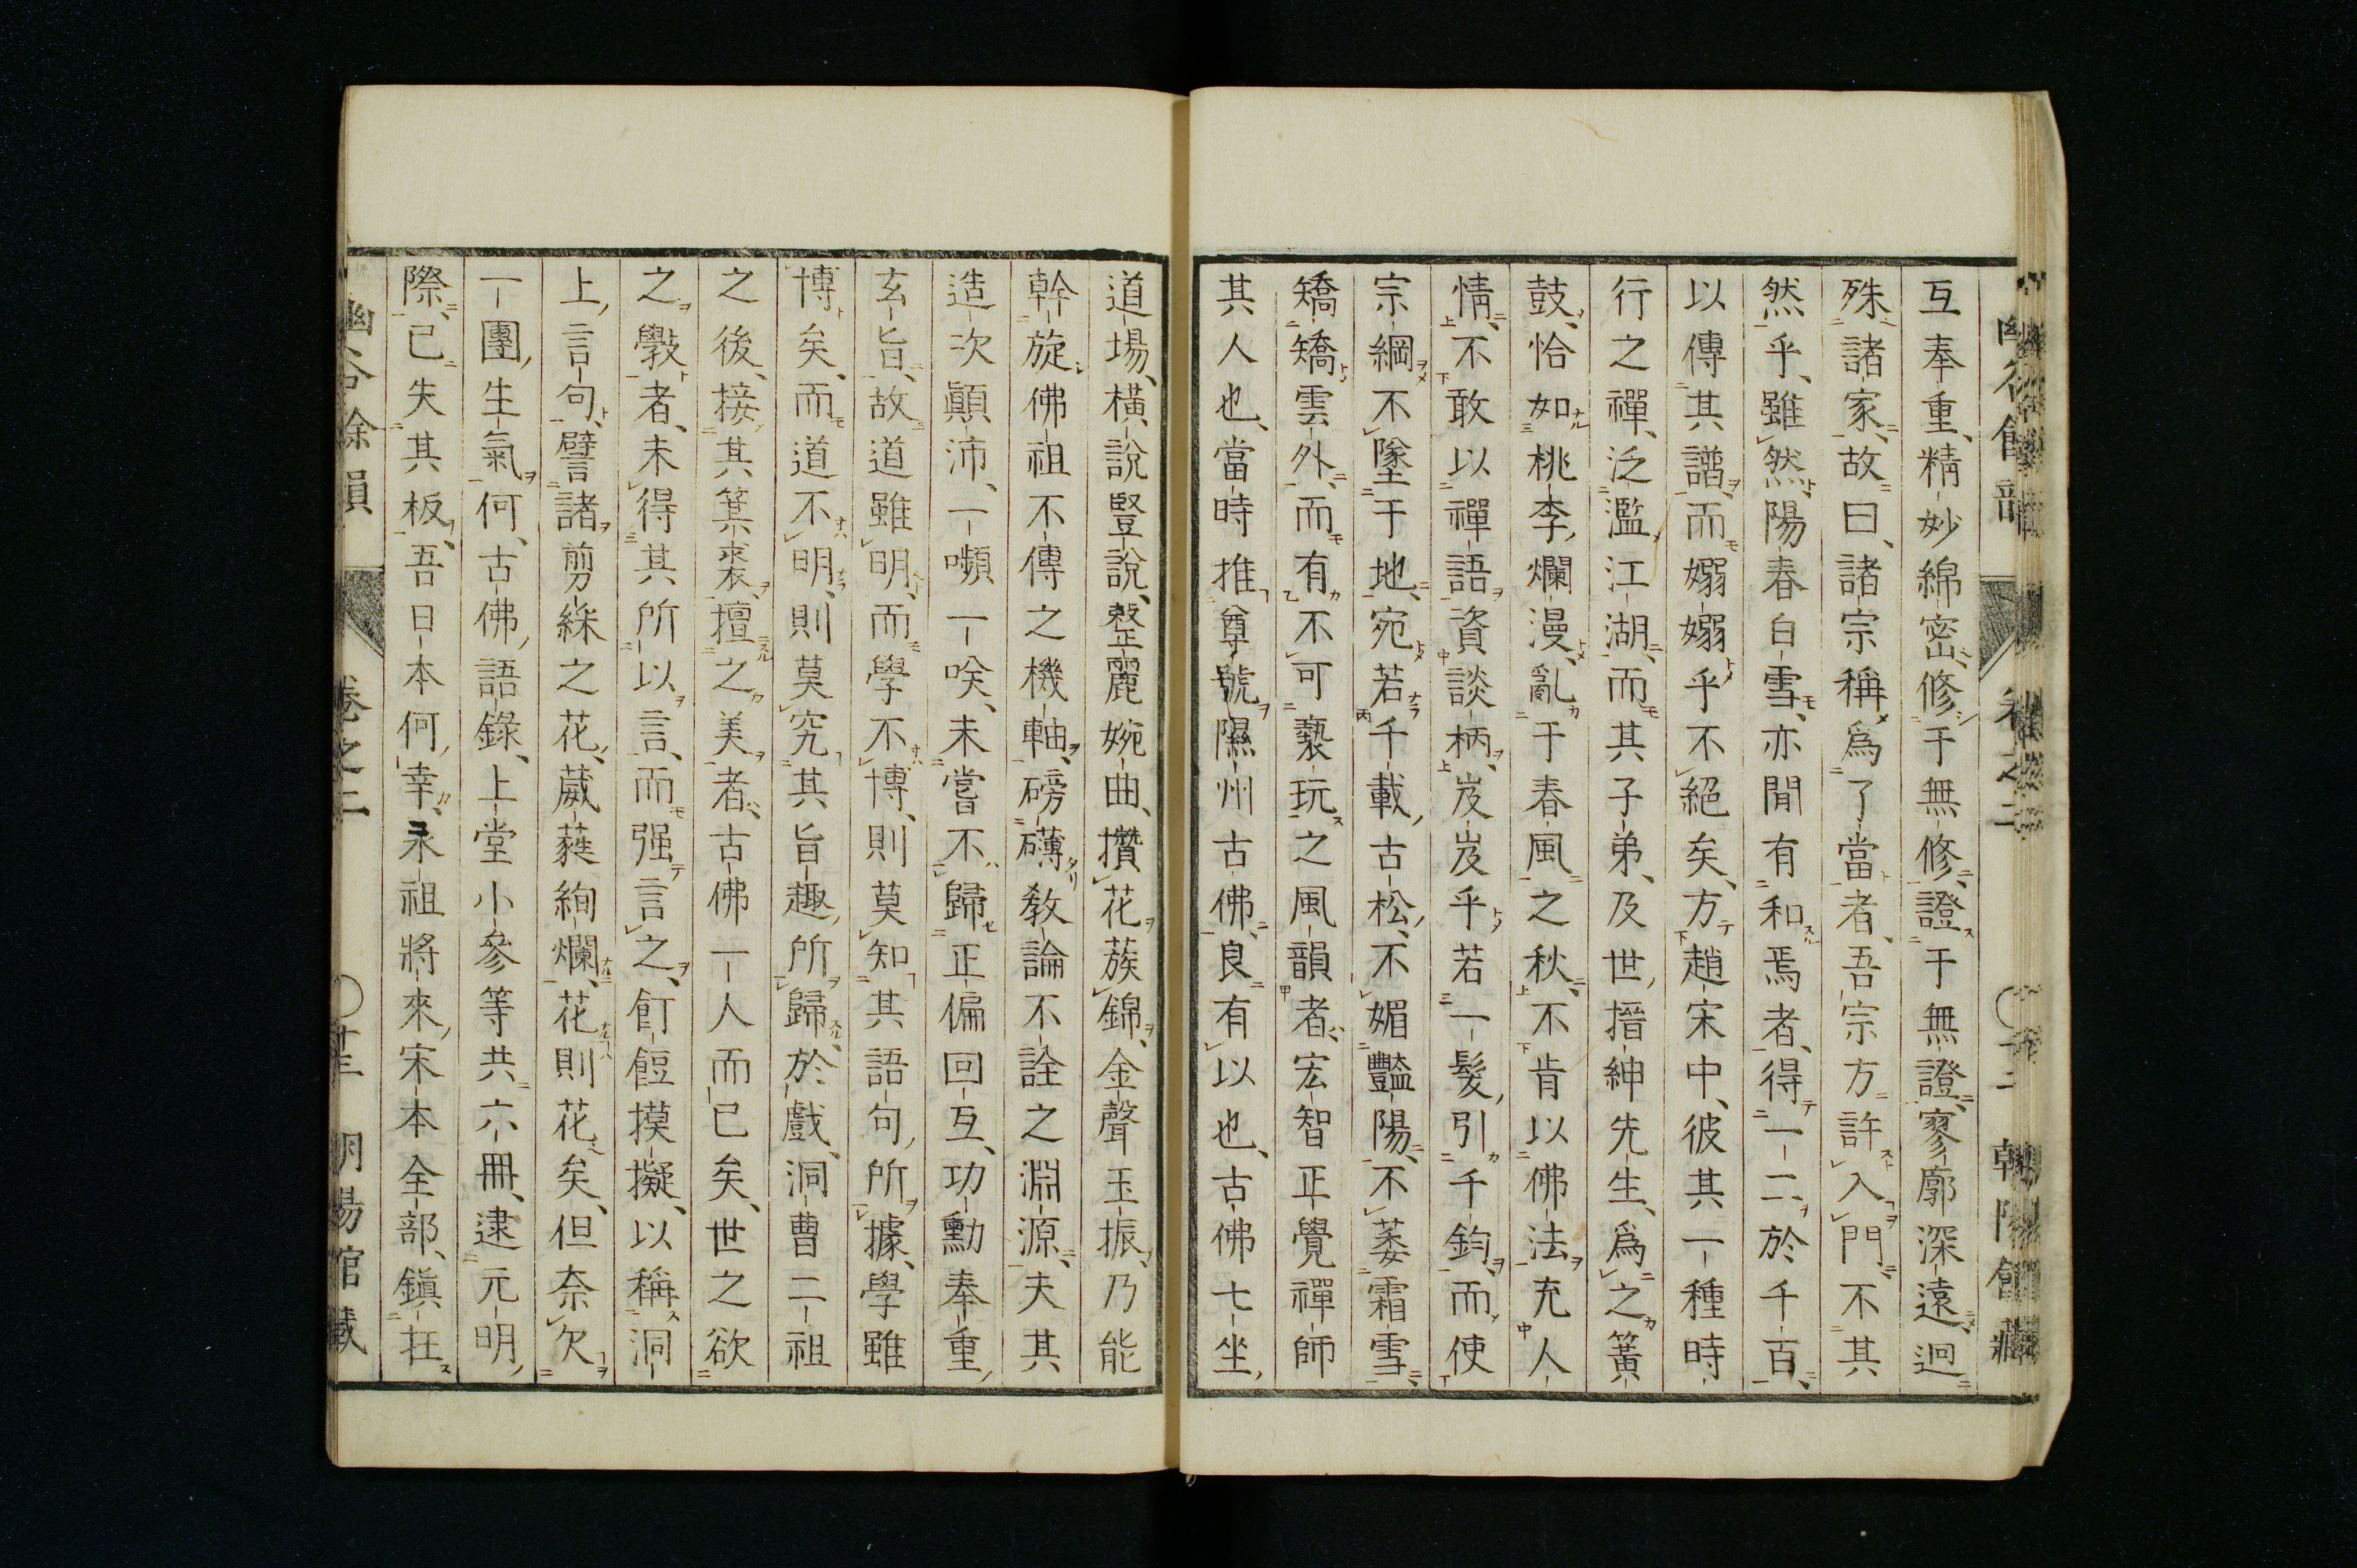 互奉重、精妙綿密、修于無修、證于無證、寥廓深遠、迥
殊諸家、故曰、諸宗稱爲了當者、吾宗方許入門、不其
然乎、雖然、陽春白雪、亦聞有和焉者、得一二於千百、
以傳其譜、而嫋嫋乎不絕矣、方趙宋中、彼其一種時
行之禪、泛濫江湖、而其子弟、及世搢紳先生、爲之簧
鼓、恰如桃李爛漫、亂于春風之秋、不肯以佛法充人
情、不敢以禪語資談柄、岌岌乎若一髮引千鈞、而使
宗綱不墜于地、宛若千載古松、不媚豔陽、不萎霜雪、
矯矯雲外、而有不可褻玩之風韻者、宏智正覺禪師
其人也、當時推尊號隰州古佛、良有以也、古佛七坐
道場、橫說豎說、整麗婉曲、攢花蔟錦、金聲玉振、乃能
幹旋佛祖不傳之機軸、磅礴教論不詮之淵源、夫其
造次顚沛、一嚬一咲、未嘗不歸正偏回互、功勳奉重、
玄旨、故道雖明、而學不博、則莫知其語句所據、學雖
博矣、而道不明、則莫究其旨趣所歸、於戲、洞曹二祖
之後、接其箕裘、擅之美者、古佛一人而已矣、世之欲
之斆者、未得其所以言、而强言之、飣餖摸擬、以稱洞
上言句、譬諸剪綵之花、葳蕤絢爛、花則花矣、但奈欠
一團生氣何、古佛語錄、上堂小參等共六冊、逮元明
際、已失其板、吾日本何幸、永祖將來、宋本全部、鎭在
幽谷餘韻 卷之二 〇十三 朝陽館藏